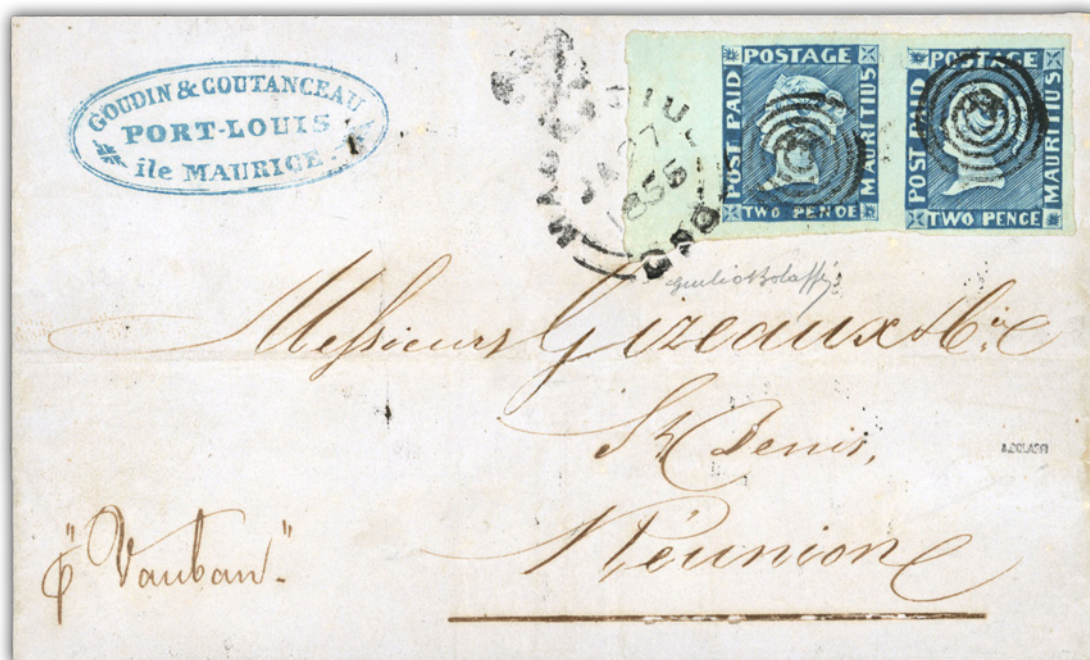 GOUDIN & COUTANCEAU
PORT-LOUIS
île MAURICE.
1855
POSTAGE
POST PAID
MAURITIUS
TWO PENOE
POSTAGE
POST PAID
MAURITIUS
TWO PENCE
Giulio Bolaffi
Messieurs Gizeaux & Cie
St Denis,
Réunion
p "Vauban".